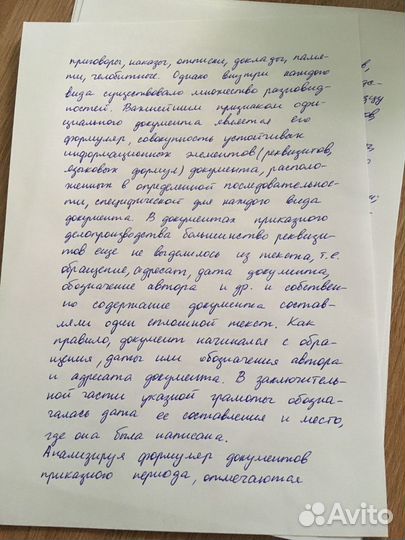 приговоры, наказы, отписки, доклады, памя-
ти, челобитные. Однако внутри каждого
вида существовало множество разновид-
ностей. Важнейшим признаком офи-
циального документа является его
формуляр, совокупность устойчивых
информационных элементов (реквизитов,
языковых формул) документа, располо-
женных в определенной последовательнос-
ти, специфической для каждого вида
документа. В документах приказного
делопроизводства большинство реквизи-
тов еще не выделилось из текста, т. е.
обращение, адресат, дата документа,
обозначение автора и др. и собствен-
но содержание документа состав-
ляли один сплошной текст. Как
правило, документ начинался с обра-
щения, даты или обозначения автора
и адресата документа. В заключитель-
ной части указной грамоты обозна-
чалась дата ее составления и место,
где она была написана.
Анализируя формуляр документов
приказного периода, отмечаются
Avito